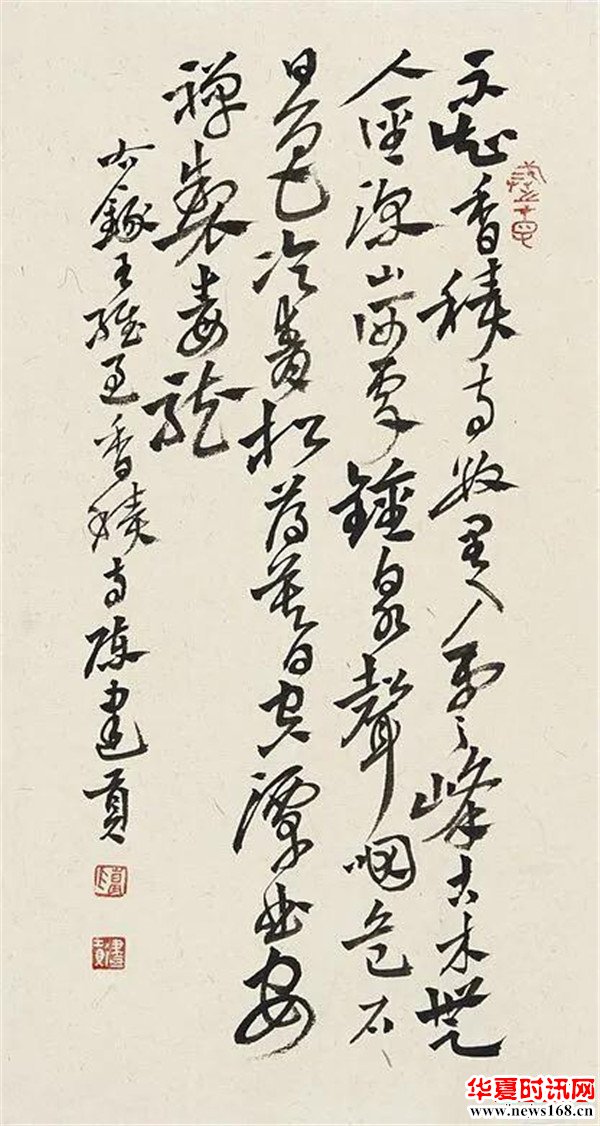 不知香積寺數里入雲峰古木無
人徑深山何處鐘泉聲咽危石
日色冷青松薄暮空潭曲安
禪製毒龍
右錄王維過香積寺陳建貢
华夏时讯网
www.news168.cn